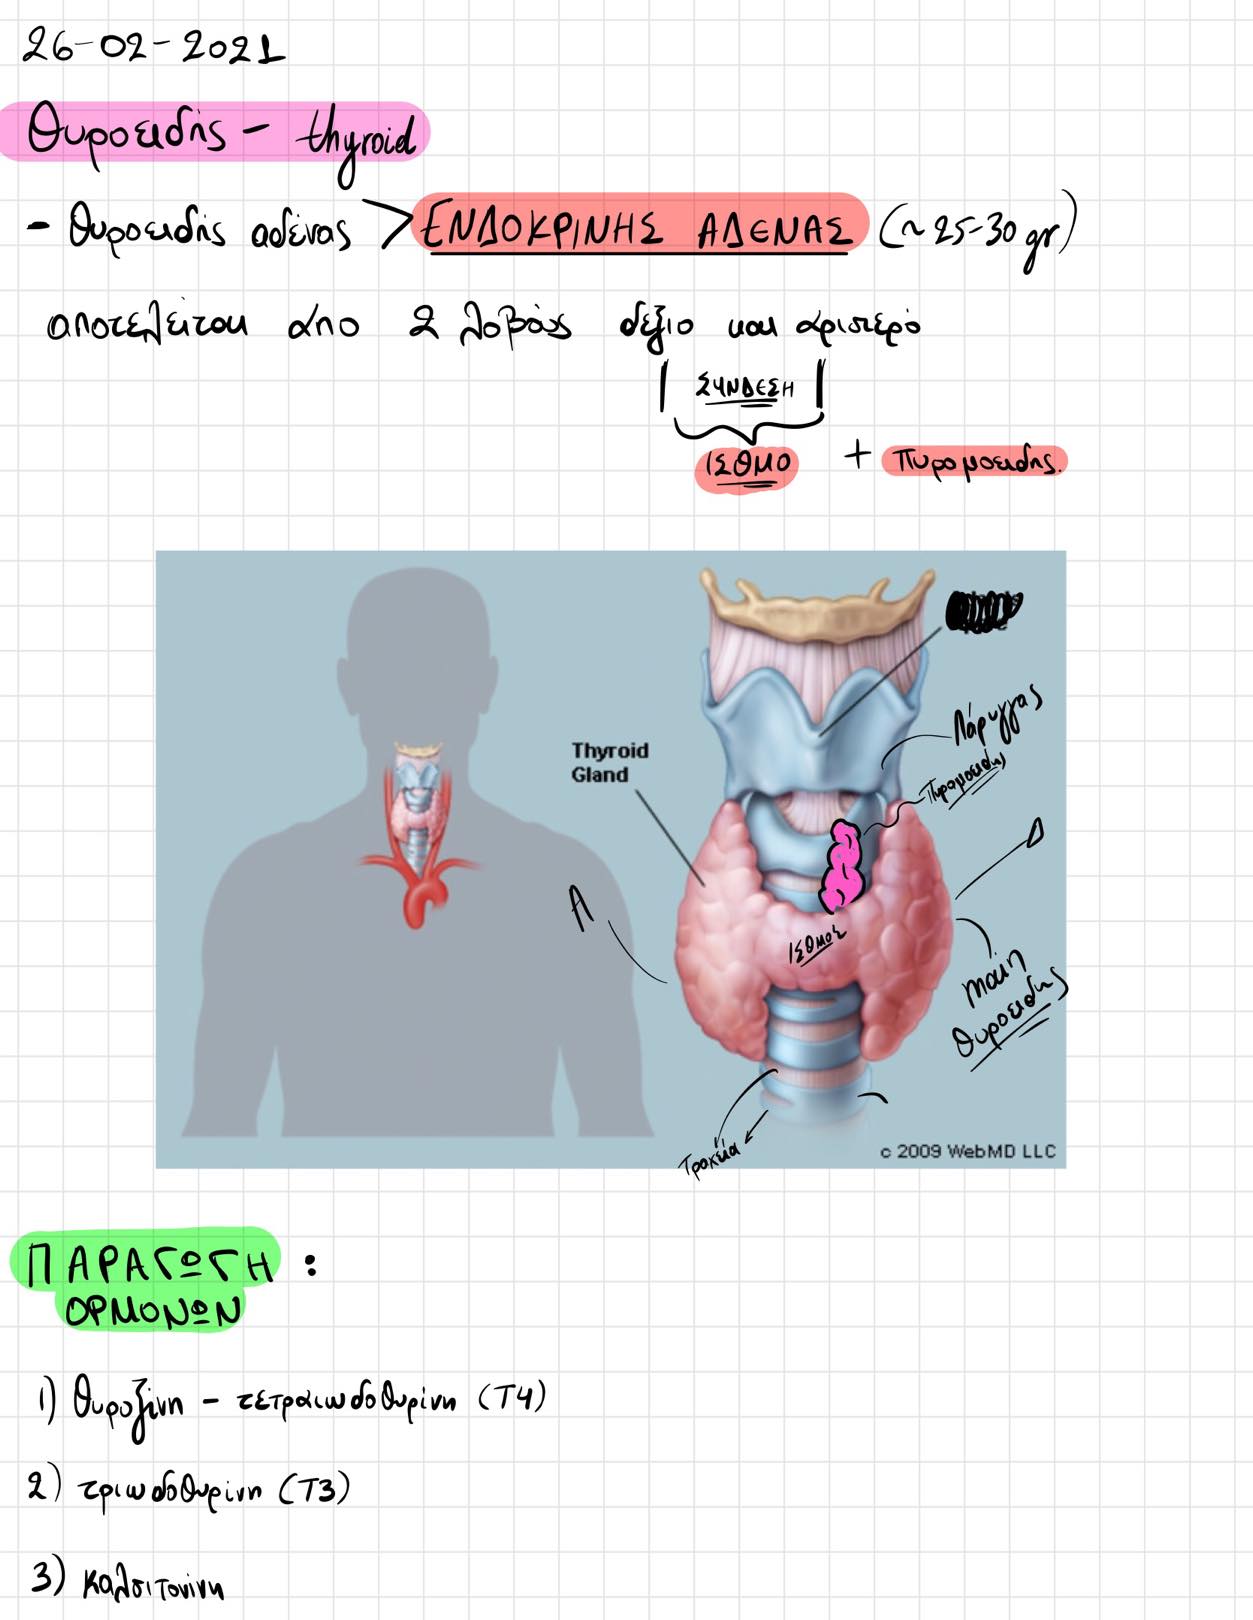 26-02-2021
Θυροειδής - thyroid
- Θυροειδής αδένας > ΕΝΔΟΚΡΙΝΗΣ ΑΔΕΝΑΣ (~25-30 gr)
αποτελείται από 2 λοβούς δεξιο και αριστερό
ΣΥΝΔΕΣΗ
ΙΣΘΜΟ + πυραμοειδης.
Λάρυγγας
Thyroid
Gland
Πυραμοειδης
Δ
Α
ΙΣΘΜΟΣ
Θυροειδης
Τραχεία
c 2009 WebMD LLC
ΠΑΡΑΓΩΓΗ :
ΟΡΜΟΝΩΝ
1) Θυροξίνη - τετραιωδοθυρίνη (T4)
2) τριωδοθυρίνη (T3)
3) καλσιτονίνη